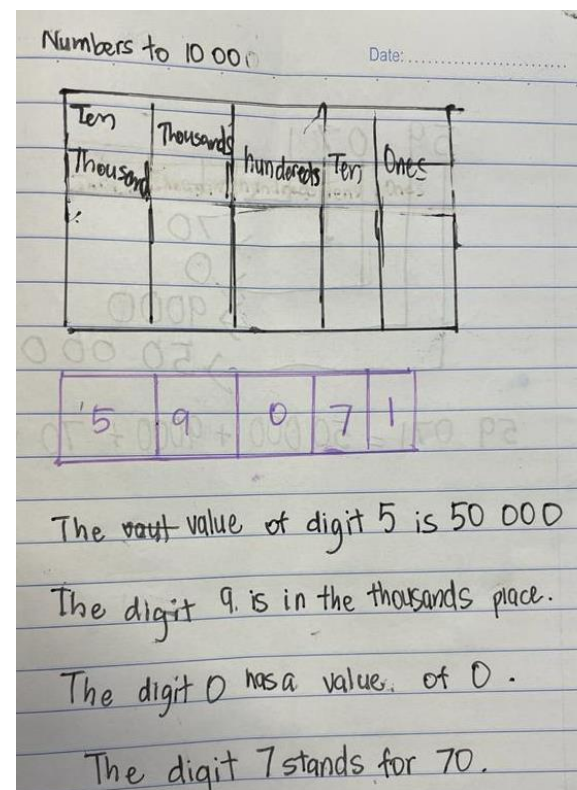 Numbers to 10 000
Date:
Ten Thousands hundereds Ten Ones
Thousand
5 9 0 7 1
The value of digit 5 is 50 000
The digit 9. is in the thousands place.
The digit 0 has a value. of 0.
The digit 7 stands for 70.